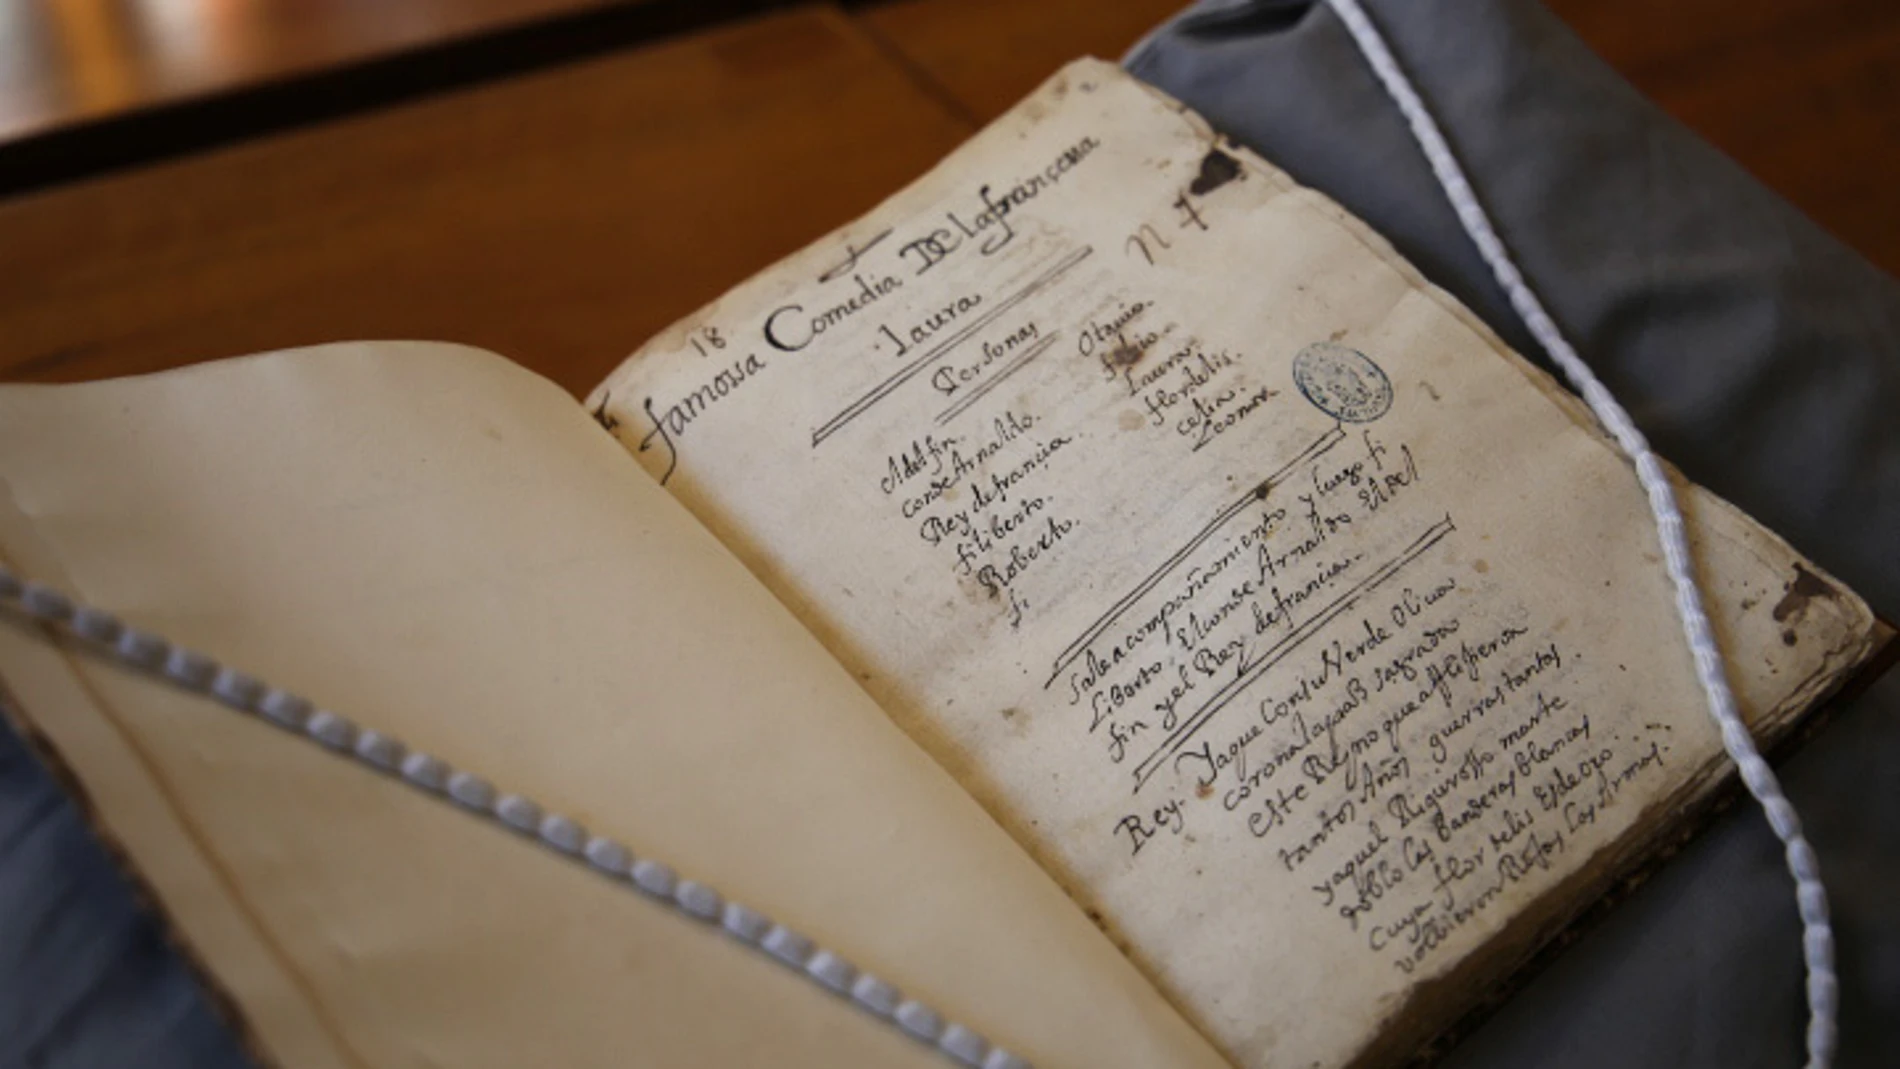 18
famossa Comedia DE lafrançessa
Laura
n 7
Personas
Adolfin.
conde Arnaldo.
Rey defrancia.
filiberto.
Roberto.
fi
Otauio.
Laura.
flordelis.
celia.
Leonor
Sale acompañamiento y luego fi
liberto, El conde Arnaldo El Del
fin y el Rey defrancia.
Rey. Yaque Consu Verde Oliua
corona lapaz sagrada
Este Reyno que afligieron
tantos Años guerras tantas.
yaquel Riguroso marte
doblo las banderas blancas
cuya flor delis Esdeoro
Rojas Las Armas.